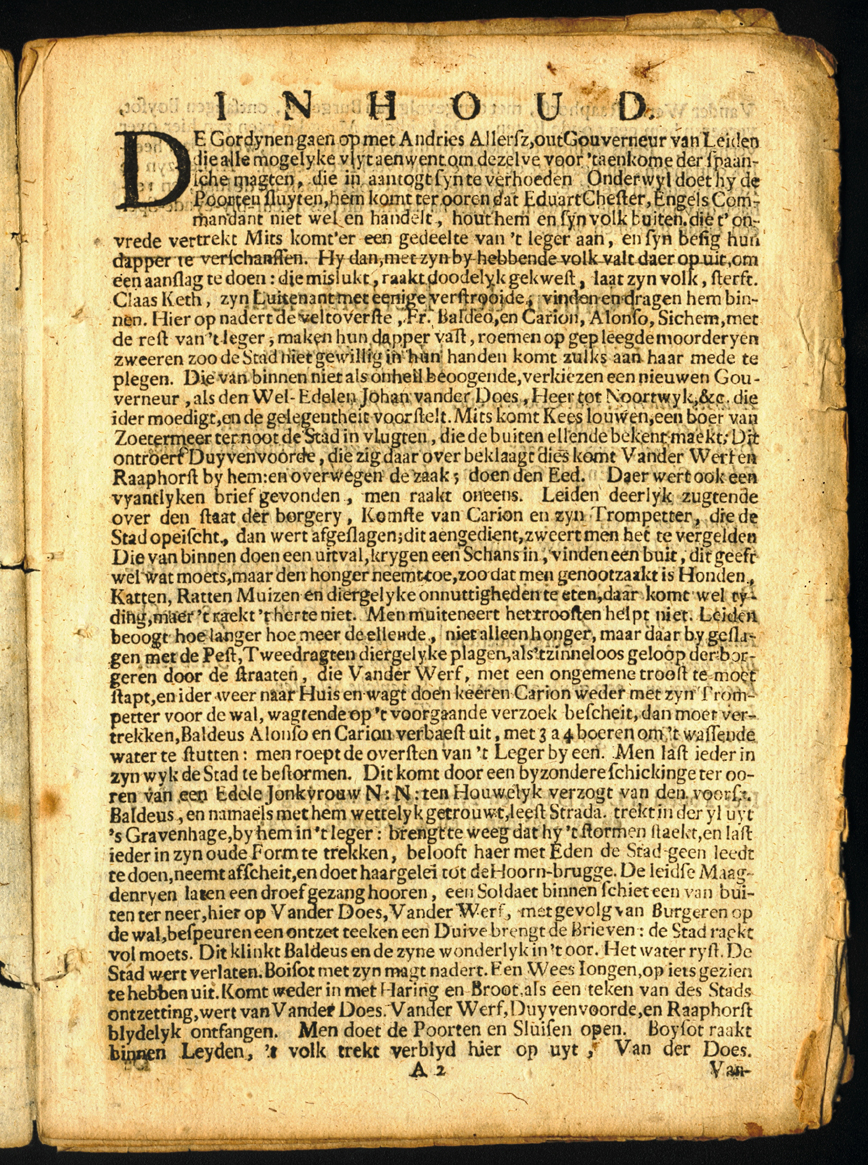 INHOUD.
DE Gordynen gaen op met Andries Allersz, out Gouverneur van Leiden
die alle mogelyke vlyt aenwent om dezelve voor 'taenkome der spaan-
sche magten, die in aantogt syn te verhoeden Onderwyl doet hy de
Poorten sluyten, hem komt ter ooren dat Eduart Chester, Engels Com-
mandant niet wel en handelt, hout hem en syn volk buiten, die t' on-
vrede vertrekt Mits komt'er een gedeelte van 't leger aan, en syn besig hun
dapper te verschanssen. Hy dan, met zyn by hebbende volk valt daer op uit, om
een aanslag te doen: die mislukt, raakt doodelyk gekwest, laat zyn volk, sterft.
Claas Keth, zyn Luitenant met eenige verstrooide, vinden en dragen hem bin-
nen. Hier op nadert de veltoverste, Fr. Baldeo, en Carion, Alonso, Sichem, met
de rest van 't leger; maken hun dapper vast, roemen op gepleegde moorderyen
zweeren zoo de Stad niet gewillig in hun handen komt zulks aan haar mede te
plegen. Die van binnen niet als onheil beoogende, verkiezen een nieuwen Gou-
verneur, als den Wel-Edelen Johan vander Does, Heer tot Noortwyk, &c. die
ider moedigt, en de gelegentheit voorstelt. Mits komt Kees louwen, een boer van
Zoetermeer ter noot de Stad in vlugten, die de buiten ellende bekent maekt; Dit
ontroert Duyvenvoorde, die zig daar over beklaagt dies komt Vander Werf en
Raaphorst by hem: en overwegen de zaak; doen den Eed. Daer wert ook een
vyantlyken brief gevonden, men raakt oneens. Leiden deerlyk zugtende
over den staat der borgery, Komste van Carion en zyn Trompetter, die de
Stad opeischt, dan wert afgeslagen; dit aengedient, zweert men het te vergelden
Die van binnen doen een uitval, krygen een Schans in, vinden een buit, dit geeft
wel wat moets, maar den honger neemt toe, zoo dat men genootzaakt is Honden,
Katten, Ratten Muizen en diergelyke onnuttigheden te eten, daar komt wel ty-
ding, maer 't raekt 't herte niet. Men muiteneert het troosten helpt niet. Leiden
beoogt hoe langer hoe meer de ellende, niet alleen honger, maar daar by gesla-
gen met de Pest, Tweedragt en diergelyke plagen, als 't zinneloos geloop der bor-
geren door de straaten, die Vander Werf, met een ongemene troost te moet
stapt, en ider weer naar Huis en wagt doen keeren Carion weder met zyn Trom-
petter voor de wal, wagtende op 't voorgaande verzoek bescheit, dan moet ver-
trekken, Baldeus Alonso en Carion verbaest uit, met 3 a 4 boeren om 't wassende
water te stutten: men roept de oversten van 't Leger by een. Men last ieder in
zyn wyk de Stad te bestormen. Dit komt door een byzondere schickinge ter oo-
ren van een Edele Jonkvrouw N: N: ten Houwelyk verzogt van den voorsz.
Baldeus, en namaels met hem wettelyk getrouwt, leest Strada. trekt in der yl uyt
's Gravenhage, by hem in 't leger: brengt te weeg dat hy 't stormen staekt, en last
ieder in zyn oude Form te trekken, belooft haer met Eden de Stad geen leedt
te doen, neemt afscheit, en doet haar gelei tot de Hoorn-brugge. De leidse Maag-
denryen laten een droef gezang hooren, een Soldaet binnen schiet een van bui-
ten ter neer, hier op Vander Does, Vander Werf, met gevolg van Burgeren op
de wal, bespeuren een ontzet teeken een Duive brengt de Brieven: de Stad raekt
vol moets. Dit klinkt Baldeus en de zyne wonderlyk in 't oor. Het water ryst. De
Stad wert verlaten. Boisot met zyn magt nadert. Een Wees Iongen, op iets gezien
te hebben uit. Komt weder in met Haring en Broot, als een teken van des Stads
ontzetting, wert van Vander Does, Vander Werf, Duyvenvoorde, en Raaphorst
blydelyk ontfangen. Men doet de Poorten en Sluisen open. Boysot raakt
binnen Leyden, 't volk trekt verblyd hier op uyt, Van der Does.
A 2 Van-